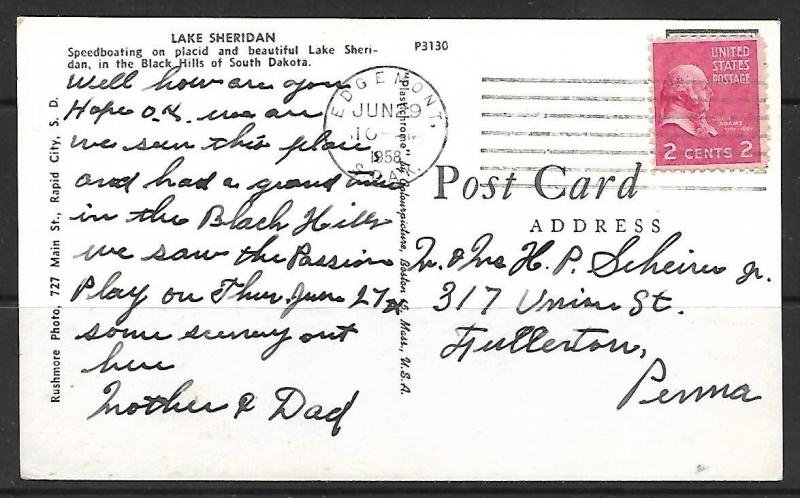 LAKE SHERIDAN
Speedboating on placid and beautiful Lake Sheri-
dan, in the Black Hills of South Dakota.
P3130
Well how are you
Hope O.K. we are
we seen this place
and had a grand time
in the Black Hills
we saw the Passion
Play on Thur. June 27
some scenery out
here
Mother & Dad
Rushmore Photo, 727 Main St., Rapid City, S. D.
"Plastichrome" by Colourpicture, Boston 15, Mass., U.S.A.
EDGEMONT,
JUN 29
10
1958
S. DAK.
UNITED
STATES
POSTAGE
JOHN
ADAMS
2 CENTS 2
Post Card
ADDRESS
Mr. & Mrs H. P. Scheirer Jr.
317 Union St.
Fullerton,
Penna